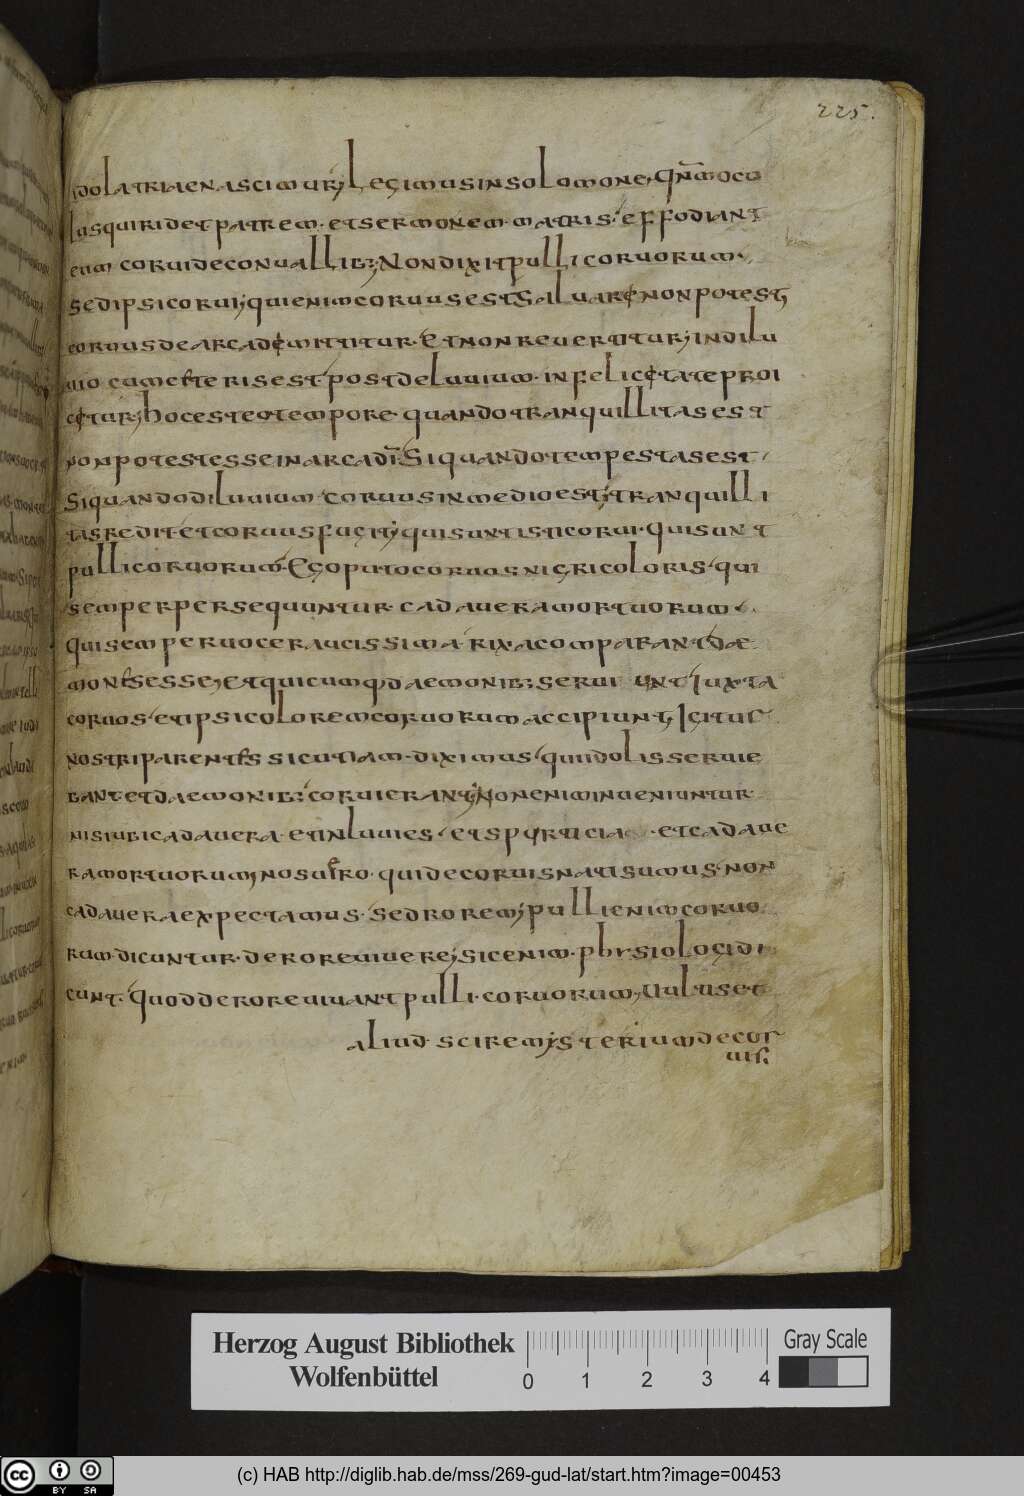 225.
idolatriae nascimur; Legimus in solomone, qnm ocu
lus qui ridet patrem. et sermonem. matris. effodiant
eum corui de conuallib; Non dixit pulli coruorum.
sed ipsi corui; qui enim coruus est Saluare non potest;
coruus de arca demittitur. Et non reuertitur; in dilu
uio cum efferis est post deluuium. in felicetate proi
cetur; hoc est eo tempore quando tranquillitas est
non potest esse in arca di Si quando tempestas est,
Si quando diluuium coruus in medio est; tranquilli
tas redit. et coruus fugit; qui sunt isti corui. qui sunt
pulli coruorum. Ego puto coruos nigri coloris, qui
semper persequuntur. cadauera mortuorum.
qui semper uoce raucissima. rixa comparant. dae
mones esse, et quicumq. daemonib; serui unt iuxta
coruos et ipsi colorem coruorum accipiunt, Igitur
nostri parentes sicut iam. diximus qui idolis seruie
bant. et daemonib; corui erant; Non enim inueniuntur
nisi ubi cadauera. et inluuies, et spurticia. et cadaue
ra mortuorum, nos uero. qui de coruis nati sumus. non
cadauera expectamus. sed rorem; pulli enim coruo
rum. dicuntur. de rore uiuere; sic enim. physiologi di
cunt. quod de rore uiuant pulli. coruorum, Uultis et
aliud. scire mysterium de cor
uis;
Herzog August Bibliothek
Wolfenbüttel
0 1 2 3 4
Gray Scale
cc BY SA
(c) HAB http://diglib.hab.de/mss/269-gud-lat/start.htm?image=00453